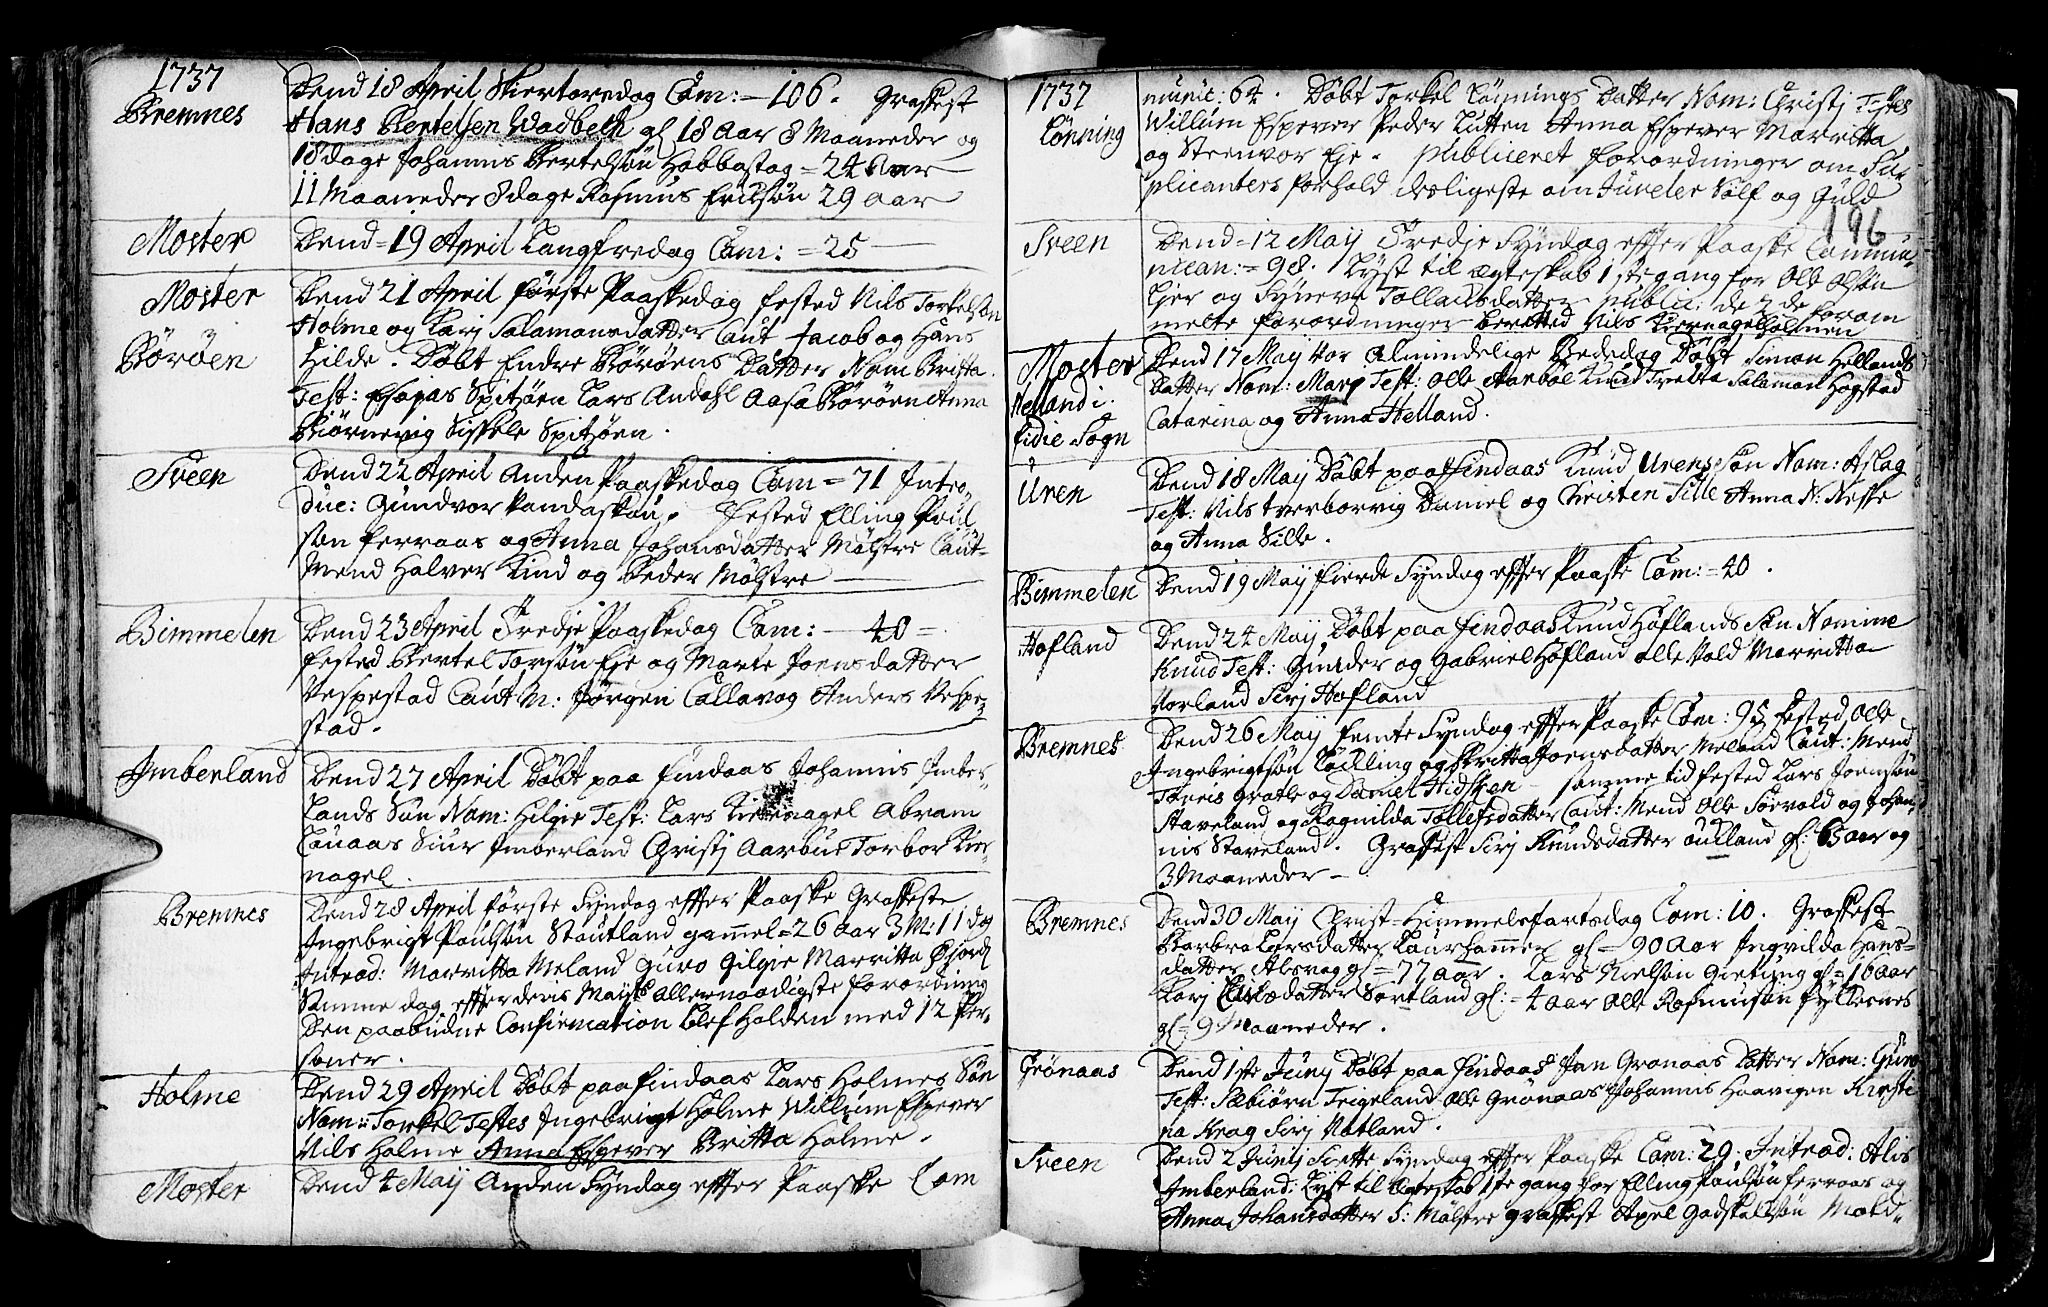 1737
Bremnes
Dend 18 April Skiertorsdag Com: = 106. Graffest
Hans Bertelsen Wadbeth gl 18 Aar 8 Maaneder og
18 dage Johannis Bertelsøn Habbastag = 24 Aar
11 Maaneder 8 dage Rasmus Erilsøn 29 aar
Moster
Dend = 19 April Langfredag Com: = 25
Moster
Børøen
Dend 21 April første Paaskedag fested Nils Torkelsøn
Holme og Karj Salamonsdatter Caut Jacob og Hans
Hilde. Døbt Endre Børøens Datter Nom Britta.
Test: Esajas Spitzøen Lars Andahl Aasa Børøen Anna
Biørnevig Siskele Spitzøen.
Sveen
Dend 22 April Anden Paaskedag Com = 71 Intro
duc: Gundvor Vandaskou. Fested Elling Poul
søn ferraas og Anna Johansdatter Mølstre Caut
Mend Halver Lind og Peder Mølstre
Bimmelen
Dend 23 April Tredje Paaskedag Com: = 40 =
fested Bertel Torsøn Eje og Marte Joensdatter
Vespestad Caut M: Jørgen Callavag Anders Vespe
stad.
Imberland
Dend 27 April Døbt paa findaas Johannis Imber
lands Søn Nom: Helgie Test: Lars Kiernagel Abram
Lauaas Siur Imberland Christj Aarbue Torbor Kier
nagel.
Bremnes
Dend 28 April første Syndag effter Paaske Graffeste
Ingebrigt Paulsøn Stautland gammel = 26 aar 3 M: 11 dag
Introd: Marritta Meland Guro Gilgie Marritta Øjord
Samme dag effter deris Mayts allernaadigste forordning
Den paabudne Confirmation blef holden med 12 Per
soner.
Holme
Dend 29 April Døbt paa findaas Lars Holmes Søn
Nom: Torkel Testes Ingebrigt Holme Willum Espever
Nils Holme Anna Espever Britta Holme.
Moster
Dend 4 Maij Anden Syndag effter Paaske Com
1737
Lønning
munic: 64. Døbt Torkel Lønnings Datter Nom: Christj Testes
Willum Espever Peder Lutten Anna Espever Marritta
og Steenvor Eje. publiceret forordninger om Su
plicanters forhold desligeste om Juveler Sølf og Guld
196
Sveen
Dend = 12 Maij Tredje Syndag effter Paaske Commu
nican: = 98. Lyst til ægteskab 1ste gang for Olle Olsøn
Ejer og Syneve Tollausdatter public: de 2de foran
melte forordninger berettet Nils Kiernagelholmen
Moster
Helland i
fidie Sogn
Dend 17 Maij var Almindelige Bededag Døbt Simon Hellands
Datter Nom: Marj Test: Olle Aarbøe Knud Tvelta Salamon Hogstad
Catarina og Anna Helland.
Uren
Dend 18 Maij Døbt paa findaas Knud Urens Søn Nom: Aslag
Test: Nils tverborvig Daniel og Christen Sille Anna N: Nesse
og Anna Sille.
Bimmelen
Dend 19 Maij fierde Syndag effter Paaske Com: = 40.
Hofland
Dend 24 Maij Døbt paa findaas Knud Hoflands Søn Nomine
Knud Test: Gunder og Gabriel Hofland olle Vold Marritta
Vorland Sirj Hofland
Bremnes
Dend 26 Maij femte Syndag effter Paaske Com: 95 fested Olle
Ingebrigtsøn Lødling og Britta Joensdatter Meland Caut: Mend
Tønnis Gratle og Daniel Hidsken samme tid fested Lars Joensøn
Staveland og Ragnilda Tollefsdatter Caut: Mend Olle Sørvold og Johan
nis Staveland. Graffest Sirj Knudsdatter Audland gl: 13 aar og
3 Maaneder
Bremnes
Dend 30 Maij Christ Himmelsfartsdag Com: 10. Graffest
Barbra Larsdatter Laurhammer gl = 90 Aar Ingvilda Hans
datter Alsvag gl = 77 aar. Lars Nielsøn Gietung gl = 16 aar
Karj Larsdatter Sortland gl: = 4 aar Olle Rasmusøn fyldesnes
gl = 9 Maaneder.
Grønaas
Dend 1ste Junij Døbt paa findaas Jan Gronaas Datter Nom: Guro
Test: Sæbiørn Teigeland Olle Grønaas Johannis Haavigen Kirsti
na Krag Sirj Natland.
Sveen
Dend 2 Junij Siette Syndag effter Paaske Com: 29. Introd: Alis
Imberland. Lyst til Ægteskab 1ste gang for Elling Poulsøn ferraas og
Anna Johansdatter S: Mølstre graffest Axel Gadskalksøn Mold